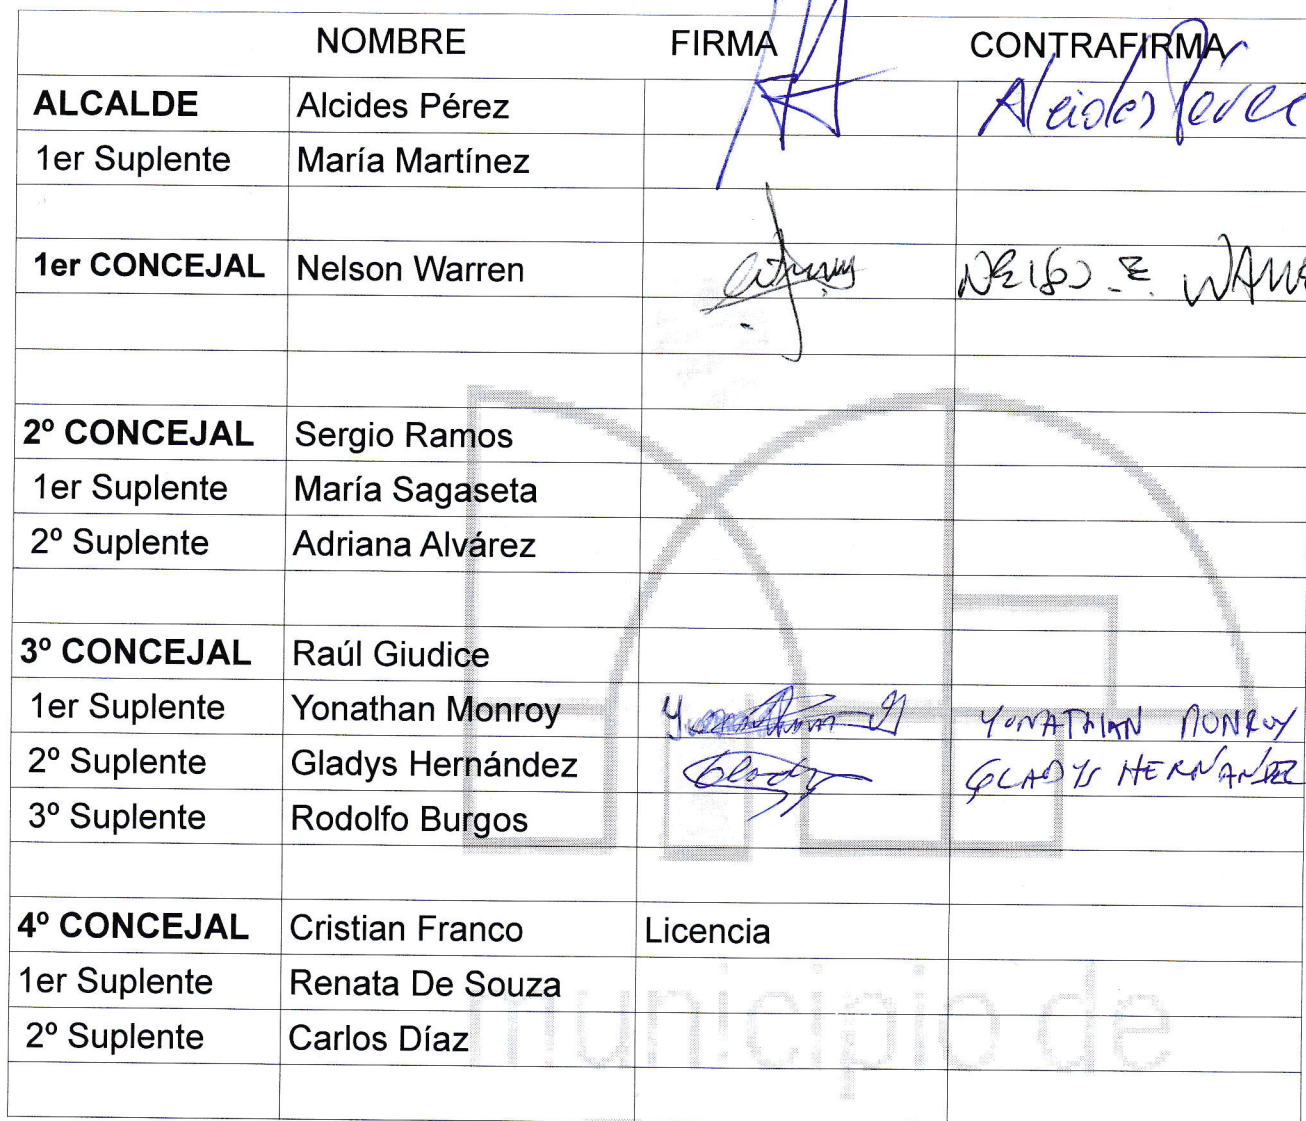 NOMBRE FIRMA CONTRAFIRMA
ALCALDE Alcides Pérez Alcides Pérez
1er Suplente María Martínez
1er CONCEJAL Nelson Warren
2º CONCEJAL Sergio Ramos
1er Suplente María Sagaseta
2º Suplente Adriana Alvárez
3º CONCEJAL Raúl Giudice
1er Suplente Yonathan Monroy YONATHAN MONROY
2º Suplente Gladys Hernández Gladys GLADYS HERNANDEZ
3º Suplente Rodolfo Burgos
4º CONCEJAL Cristian Franco Licencia
1er Suplente Renata De Souza
2º Suplente Carlos Díaz
municipio de